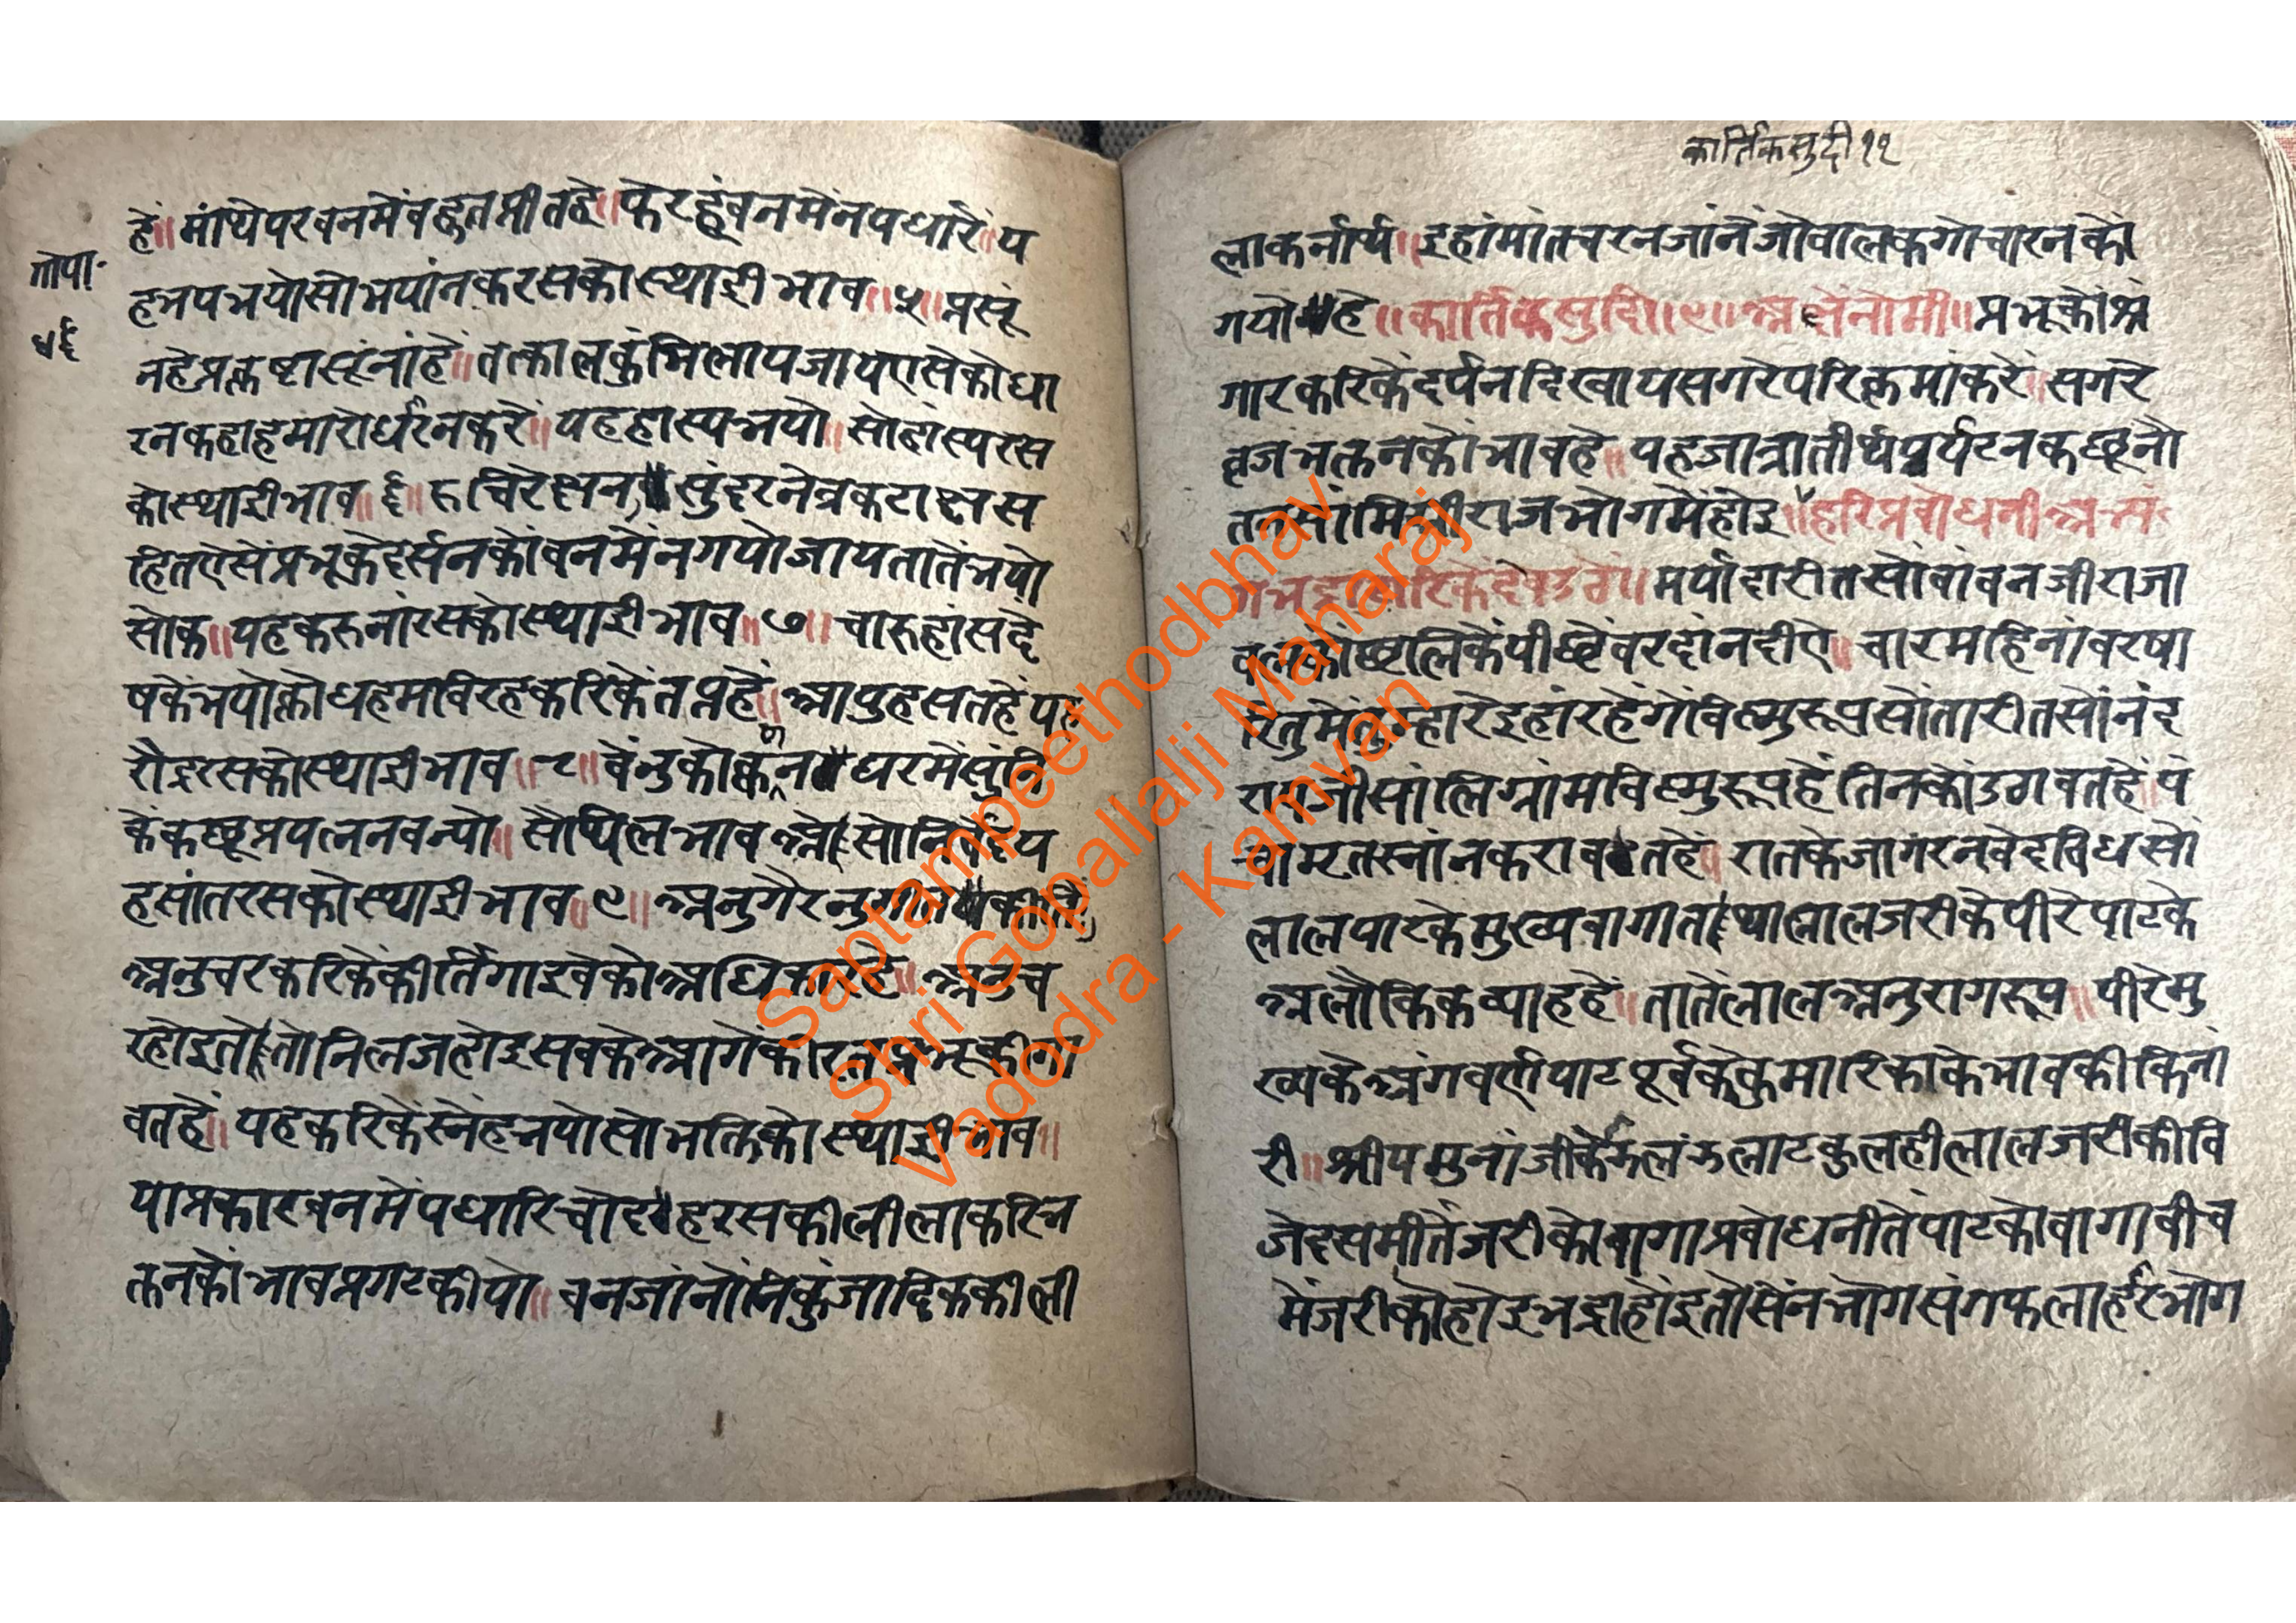 हे॥ मांथेपरवनमेंबहुतमीतहे॥ फेरहूंवनमेंनपधारें॥ य
गोपा॰
हभयभयोसोभयांनकरसकोस्थाईभाव॥५॥ प्रसं
४६
नहेप्रलकष्टासूंनांहे॥ तत्कालकुंभिलायजायएसेकोधा
रनकहाहमारोधरनकरें॥ यहहास्यभयो॥ सोहांस्यरस
कोस्थाईभाव॥६॥ रुचिरेक्षन सुंदरनेत्रकटाक्षस
हितएसेंप्रभूकेदर्सनकोंवनमेंनगयोजायतातेंभयो
सोक॥ यहकरुनांरसकोस्थाईभाव॥७॥ चारुहांसदे
षकेंभयोक्रोधहमविरहकरिकेंतप्तहें॥ आपुहसतहें यह
रौद्ररसकोस्थाईभाव॥८॥ वेंनुकोक्वन घरमेंसुंनि
केंकछूप्रयत्ननवन्यो॥ सोथिलभाव सोनिर्वेदय
हसांतरसकोस्थाईभाव॥९॥ अनुगैरनु
अनुचरकरिकेंकीर्तिगाइवेको अनुच
रहोइतो तोनिलजहोइसबकेआगेंकी
वतहें॥ यहकरिकेंस्नेहभयोसोभक्तिकोस्थाईभाव॥
याप्रकारवनमेंपधारिचोदहरसकीलीलाकरिभ
क्तनकोंभावप्रगटकीयो॥ वनजांनोंनिकुंजादिककीली
कार्तिकसुदी११
लाकर्नार्थ॥ इहांमांतचरनजांनेंजोबालकगोचारनकों
गयोहे॥ कार्तिकसुदि॥९॥ अक्षेनोमी॥ प्रभूकोशृं
गारकरिकेंदर्पनदिखायसगरेपरिक्रमांकरें॥ सगरे
व्रजभक्तनकोंभावहे॥ यहजात्रातीर्थपर्यटनकछूनौ
तनसांमिग्रीराजभोगमेंहोइ॥ हरिप्रबोधनी
मर्यादारीतसोंबांवनजीराजा
बलकोंछलिकेंपीछेंवरदांनदीए॥ चारमहिनांवरषा
रितुमेंतुम्हारेइहांरहेंगेविष्णुरूपसोंतारीतसोंनंद
रायजीसांलिग्रांमविष्णुरूपहेंतिनकोंउगवतहें॥ पं
चामृतस्नांनकरावतहें॥ रातकेजागरनवेदविधसों
लालपाटकेमुख्यबागाताथालालजरीकेपीरेपाटके
अलौकिकव्याहहें॥ तातेंलालअनुरागरूप॥ पीरेमु
ख्यकेअंगवर्णपाटपूर्वकेकुमारिकाकेभावकीकिनां
री॥ श्रीयमुनांजीके कुलहीलालजरीकीवि
जेदसमीतेंजरीकोबागाप्रबोधनीतेंपाटकोबागाबीच
मेंजरीकोहोइभद्राहोइतोसेंनभोगसंगफलाहरभोग